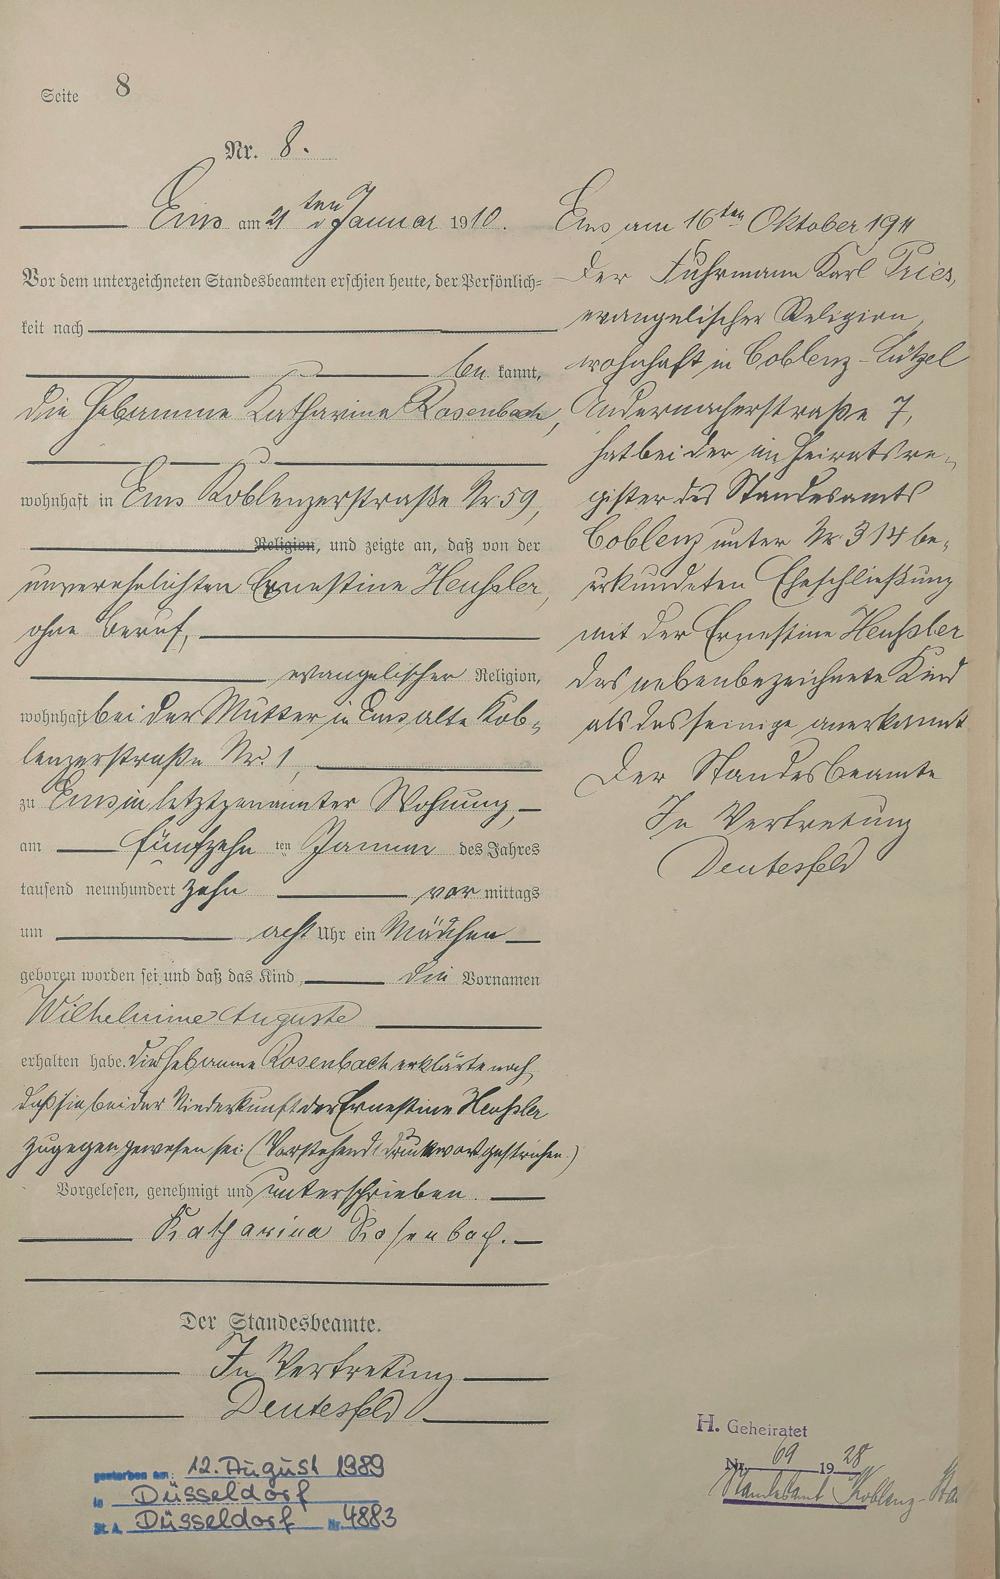 Seite 8
Nr. 8.
Ems am 21ten Januar 1910.
Vor dem unterzeichneten Standesbeamten erschien heute, der Persönlich=
keit nach
be kannt,
die Hebamme Katharina Rosenbach,
wohnhaft in Ems Koblenzerstraße Nr 59,
Religion, und zeigte an, daß von der
unverehelichten Ernestine Heußler,
ohne Beruf,
evangelischer Religion,
wohnhaft bei der Mutter in Ems alte Kob-
lenzerstraße Nr. 1,
zu Ems in letztgenannter Wohnung,
am fünfzehn ten Januar des Jahres
tausend neunhundert zehn vor mittags
um acht Uhr ein Mädchen
geboren worden sei und daß das Kind die Vornamen
Wilhelmine Auguste
erhalten habe. Die Hebamme Rosenbach erklärte noch,
daß sie bei der Niederkunft der Ernestine Heußler
zugegen gewesen sei. (Vorstehend 1 Druckwort gestrichen.)
Vorgelesen, genehmigt und unterschrieben.
Katharina Rosenbach.
Der Standesbeamte.
In Vertretung
Deutesfeld
gestorben am: 12. August 1989
in Düsseldorf
St. A. Düsseldorf Nr. 4883
Ems am 16ten Oktober 1911
Der Fuhrmann Karl Pries,
evangelischer Religion,
wohnhaft in Coblenz-Lützel
Andernacherstraße 7,
hat bei der im Heiratsre-
gister des Standesamts
Coblenz unter Nr 314 be-
urkundeten Eheschließung
mit der Ernestine Heußler
das nebenbezeichnete Kind
als das seinige anerkannt
Der Standesbeamte
In Vertretung
Deutesfeld
H. Geheiratet
Nr. 69 1928
Standesamt Koblenz-